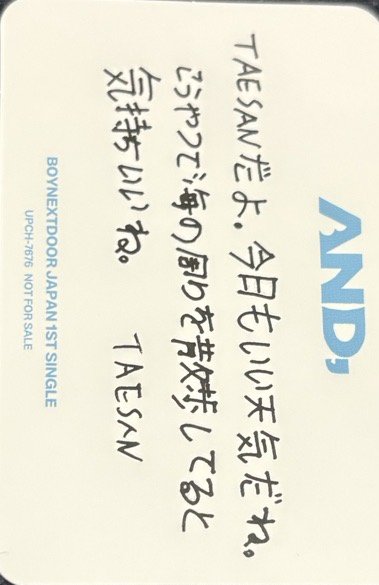 AND,
TAESANだよ。今日もいい天気だね。
こうやって海の周りを散歩してると
気持ちいいね。 TAESAN
BOYNEXTDOOR JAPAN 1ST SINGLE
UPCH-7676 NOT FOR SALE